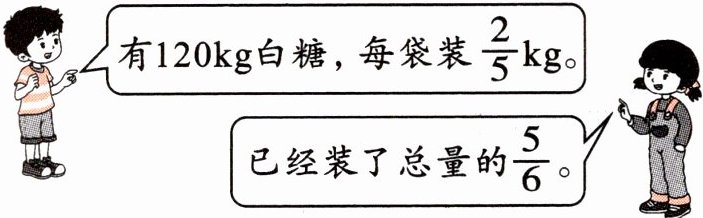 有120kg白糖，每袋装 2/5 kg。
已经装了总量的 5/6 。